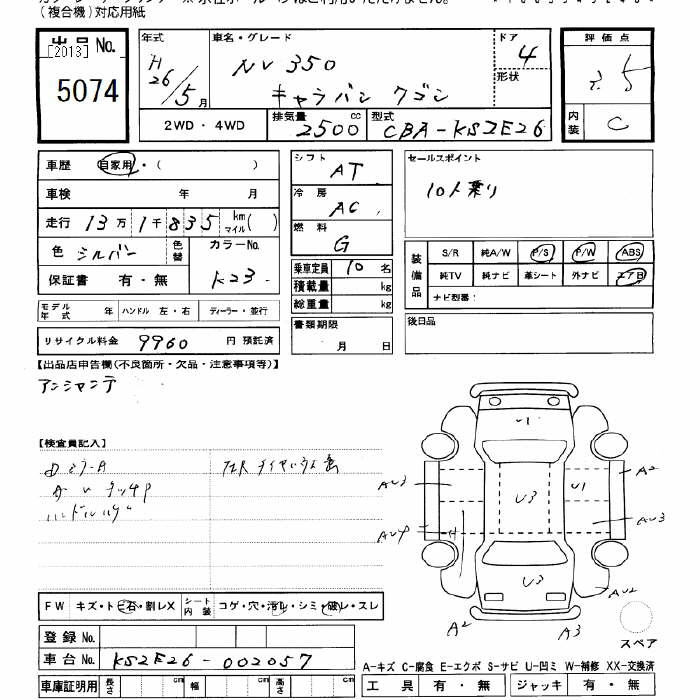 (複合機)対応用紙
出品No.
[2013]
5074
年式
H26/5月
車名・グレード
NV350
キャラバン ワゴン
ドア
4
形状
評価点
3.5
内装
C
2WD・4WD
排気量
2500 cc
型式
CBA-KS2E26
車歴 自家用・( )
車検 年 月
走行 13万1千835 km マイル( )
色 シルバー
色替
カラーNo.
K23
保証書 有・無
モデル年式 年 ハンドル 左・右 ディーラー・並行
リサイクル料金 9960 円 預託済
シフト
AT
冷房
AC
燃料
G
乗車定員 10 名
積載量 kg
総重量 kg
書類期限
月 日
セールスポイント
10人乗り
装備品
S/R 純A/W P/S P/W ABS
純TV 純ナビ 革シート 外ナビ エアB
ナビ型番:
後日品
【出品店申告欄(不良箇所・欠品・注意事項等)】
アンシャンテ
【検査員記入】
ハンドルハゲ
U1
AU3
U3
U1
A2
AU4
AU3
U3
AU2
A2
A3
スペア
FW キズ・トビ石・割レX
シート内装 コゲ・穴・汚レ・シミ・破レ・スレ
登録No.
車台No. KS2E26-002057
車庫証明用 長さ cm 幅 cm 高さ cm
A-キズ C-腐食 E-エクボ S-サビ U-凹ミ W-補修 XX-交換済
工具 有・無 ジャッキ 有・無